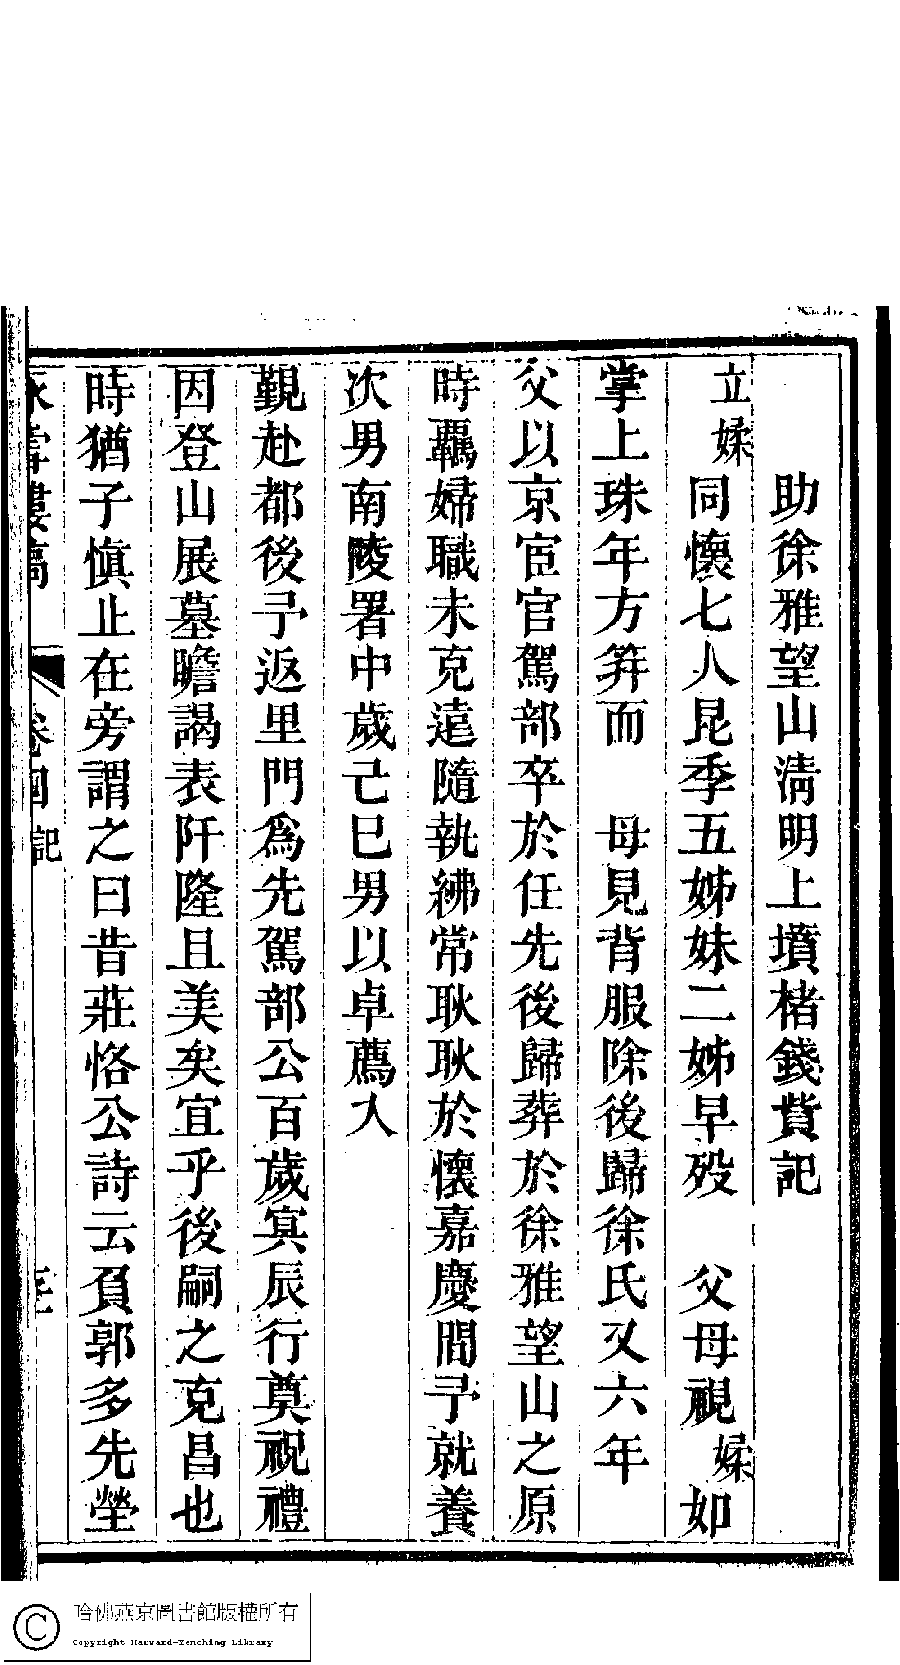 助徐雅望山清明上墳楮錢貲記
立媃同懷七人昆季五姊妹二姊早歿　父母視媃如
掌上珠年方笄而　母見背服除後歸徐氏又六年
父以京宦官駕部卒於任先後歸葬於徐雅望山之原
時羈婦職未克遠隨執紼常耿耿於懷嘉慶間予就養
次男南陵署中歲己巳男以卓薦入
覲赴都後予返里門爲先駕部公百歲冥辰行奠祝禮
因登山展墓瞻謁表阡隆且美矣宜乎後嗣之克昌也
時猶子慎止在旁謂之曰昔莊恪公詩云負郭多先塋
卷四　記
哈佛燕京圖書館版權所有
Copyright Harvard-Yenching Library